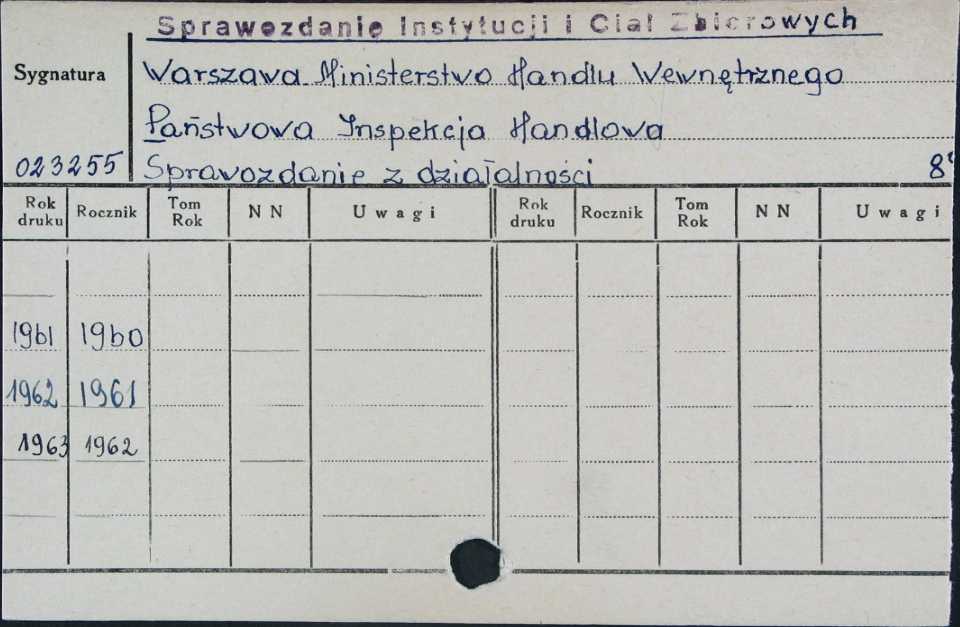 Sprawozdanie Instytucji i Ciał Zbiorowych
Sygnatura
Warszawa. Ministerstwo Handlu Wewnętrznego
Państwowa Inspekcja Handlowa
023255 Sprawozdanie z działalności 8°
Rok druku Rocznik Tom Rok N N Uwagi Rok druku Rocznik Tom Rok N N Uwagi
1961 1960
1962 1961
1963 1962